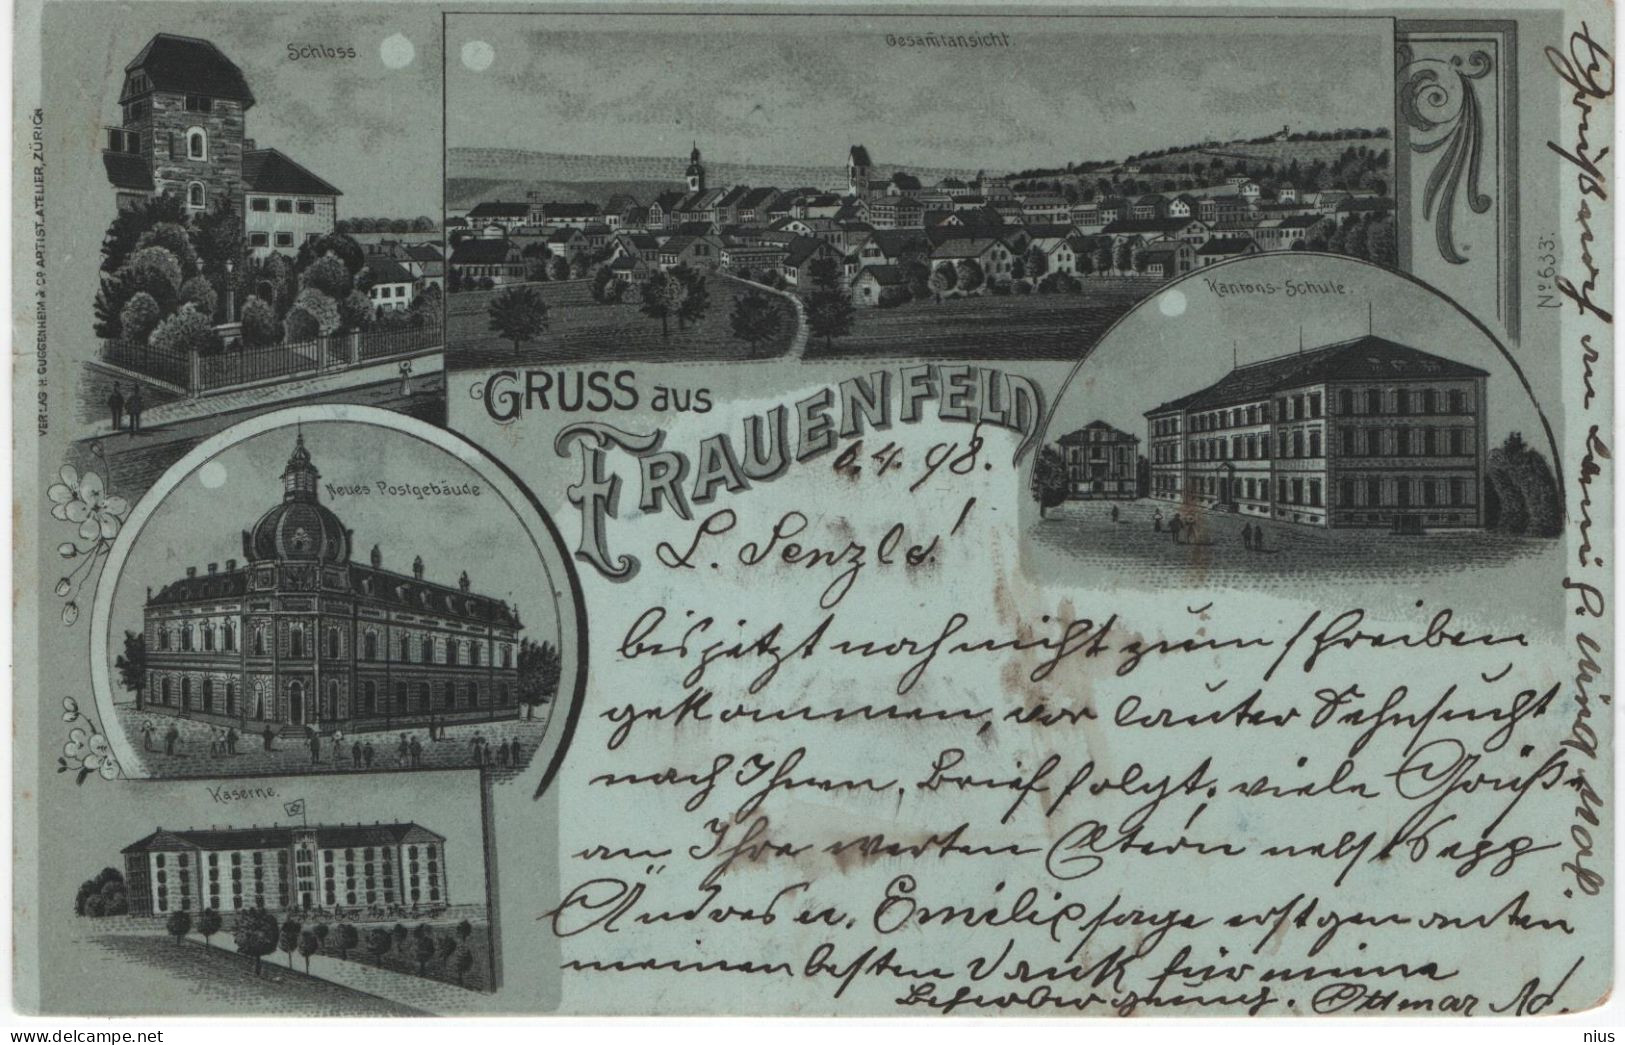 Schloss.
Gesamtansicht.
VERLAG H. GUGGENHEIM & Co ARTIST. ATELIER, ZÜRICH
No. 633.
Kantons-Schule.
GRUSS aus
FRAUENFELD
6. 4. 98.
Neues Postgebäude
Kaserne.
L.
bis jetzt noch nicht zum schreiben
gekommen, vor lauter Sehnsucht
nach Ihnen. Brief folgt, viele Grüße
an Ihre werten Eltern nebst Sepp
Andres u. Emilie sage erstgenanten
meinen besten Dank für meine
Beherbergung. Ottmar
delcampe.net
nius